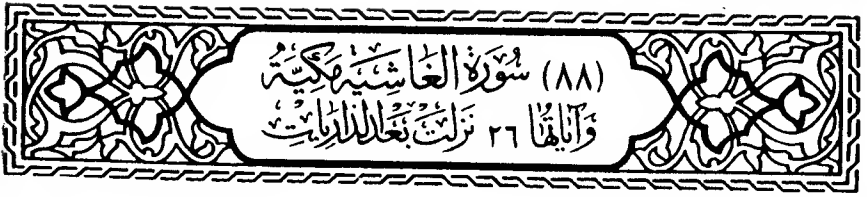 (٨٨) سُورَةُ الغَاشِيَةِ مَكِيَّةٌ
وَآيَاتُهَا ٢٦ نَزَلَتْ بَعْدَ الذَّارِيَاتِ